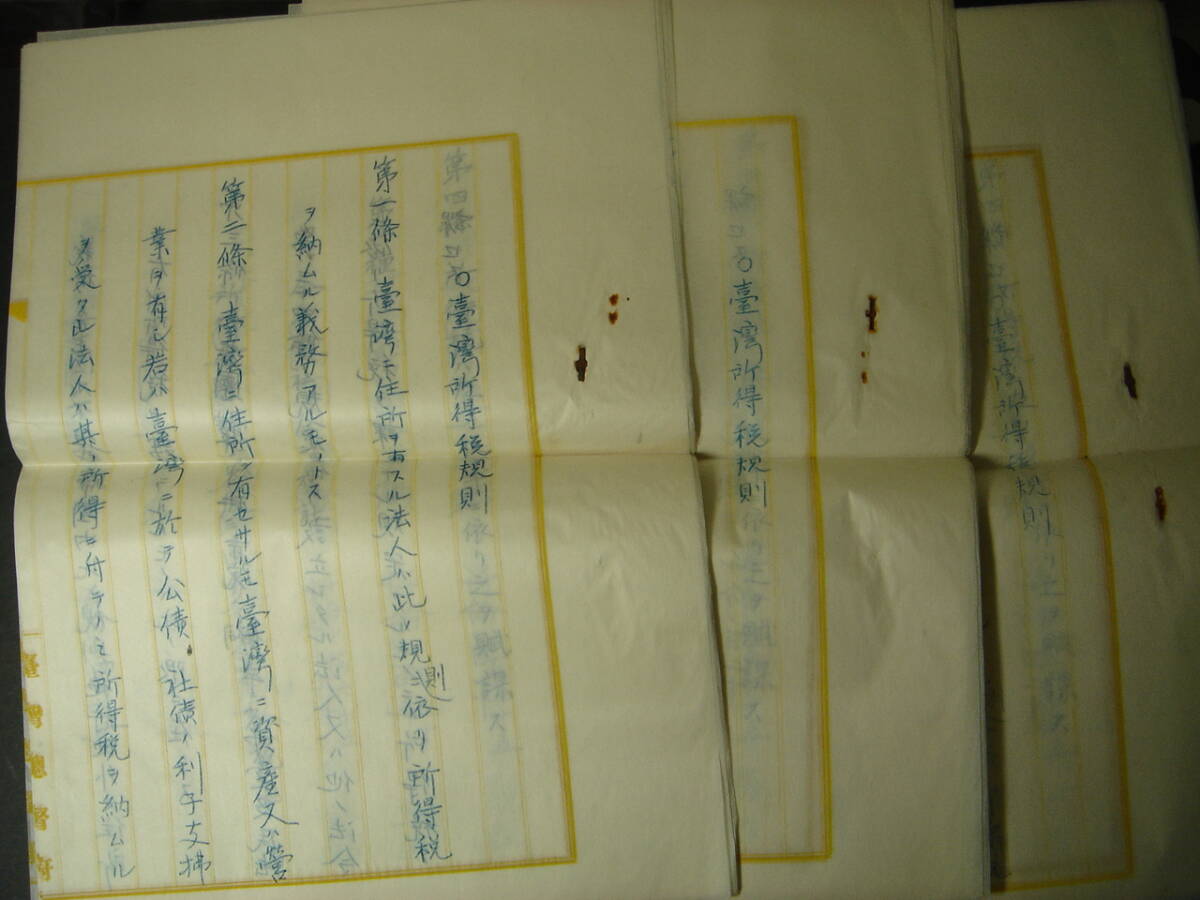 ○臺灣所得稅規則
第一條 臺灣ニ住所ヲ有スル法人ハ此ノ規則ニ依リ所得稅
ヲ納ムル義務アルモノトス
第二條 臺灣ニ住所ヲ有セサルモ臺灣ニ資產又ハ營
業ヲ有シ若ハ臺灣ニ於テ公債社債ノ利子支拂
ヲ受クル法人ハ其ノ所得ニ付テノミ所得稅ヲ納ムル
臺灣總督府
○臺灣所得稅規則
臺灣所得稅規則